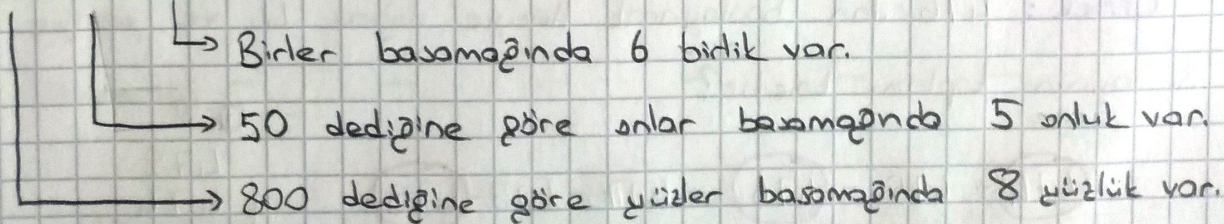 Birler basamağında 6 birlik var.
50 dediğine göre onlar basamağında 5 onluk var.
800 dediğine göre yüzler basamağında 8 yüzlük var.